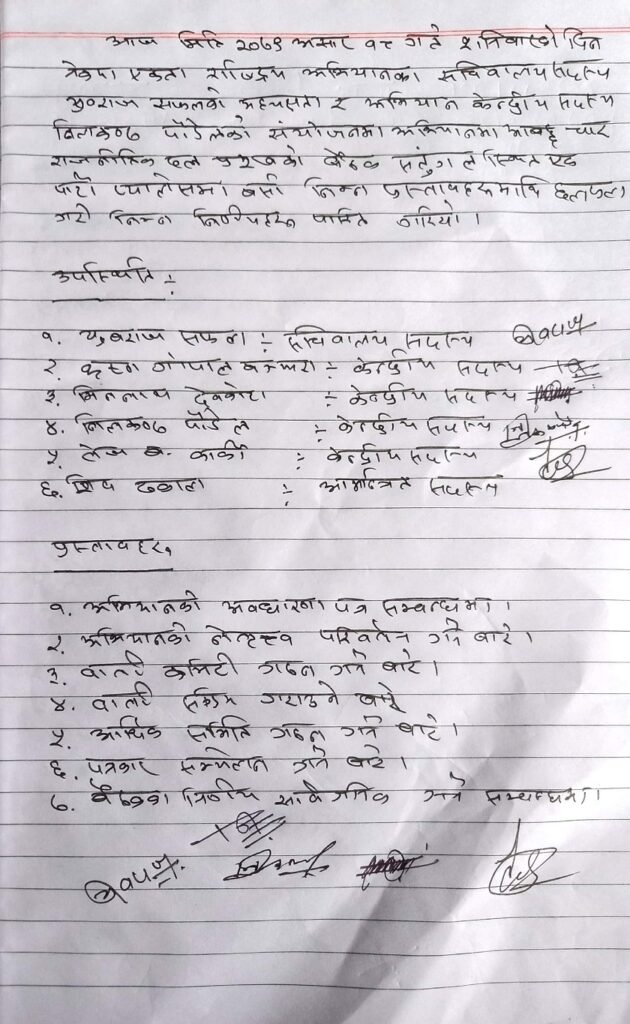 आज मिति २०७९ असार १८ गते शनिबारको दिन
एकता राष्ट्रिय अभियानका सचिवालय सदस्य
युवराज सफलको अध्यक्षता र अभियान केन्द्रीय सदस्य
निलकण्ठ पौडेलको संयोजनमा अभियानमा आवद्ध चार
राजनीतिक दल प्रमुखको बैठक सतुंगल स्थित एक
पार्टी प्यालेसमा बसी निम्न प्रस्तावहरुमाथि छलफल
गरी निम्न निर्णयहरु पारित गरियो ।
उपस्थिति :-
१. युवराज सफल :- सचिवालय सदस्य
२. कृष्ण गोपाल :- केन्द्रीय सदस्य
३. देवकोटा :- केन्द्रीय सदस्य
४. निलकण्ठ पौडेल :- केन्द्रीय सदस्य
५. तेज ब. कार्की :- केन्द्रीय सदस्य
६. शिव ढकाल :- आमन्त्रित सदस्य
प्रस्तावहरु
१. अभियानको अवधारणा पत्र सम्बन्धमा ।
२. अभियानको नेतृत्व परिवर्तन गर्ने बारे ।
३. वार्ता कमिटी गठन गर्ने बारे ।
४. वार्ता सक्रिय गराउने बारे
५. आर्थिक समिति गठन गर्ने बारे ।
६. पत्रकार सम्मेलन गर्ने बारे ।
७. बैठकका निर्णय सार्वजनिक गर्ने सम्बन्धमा ।